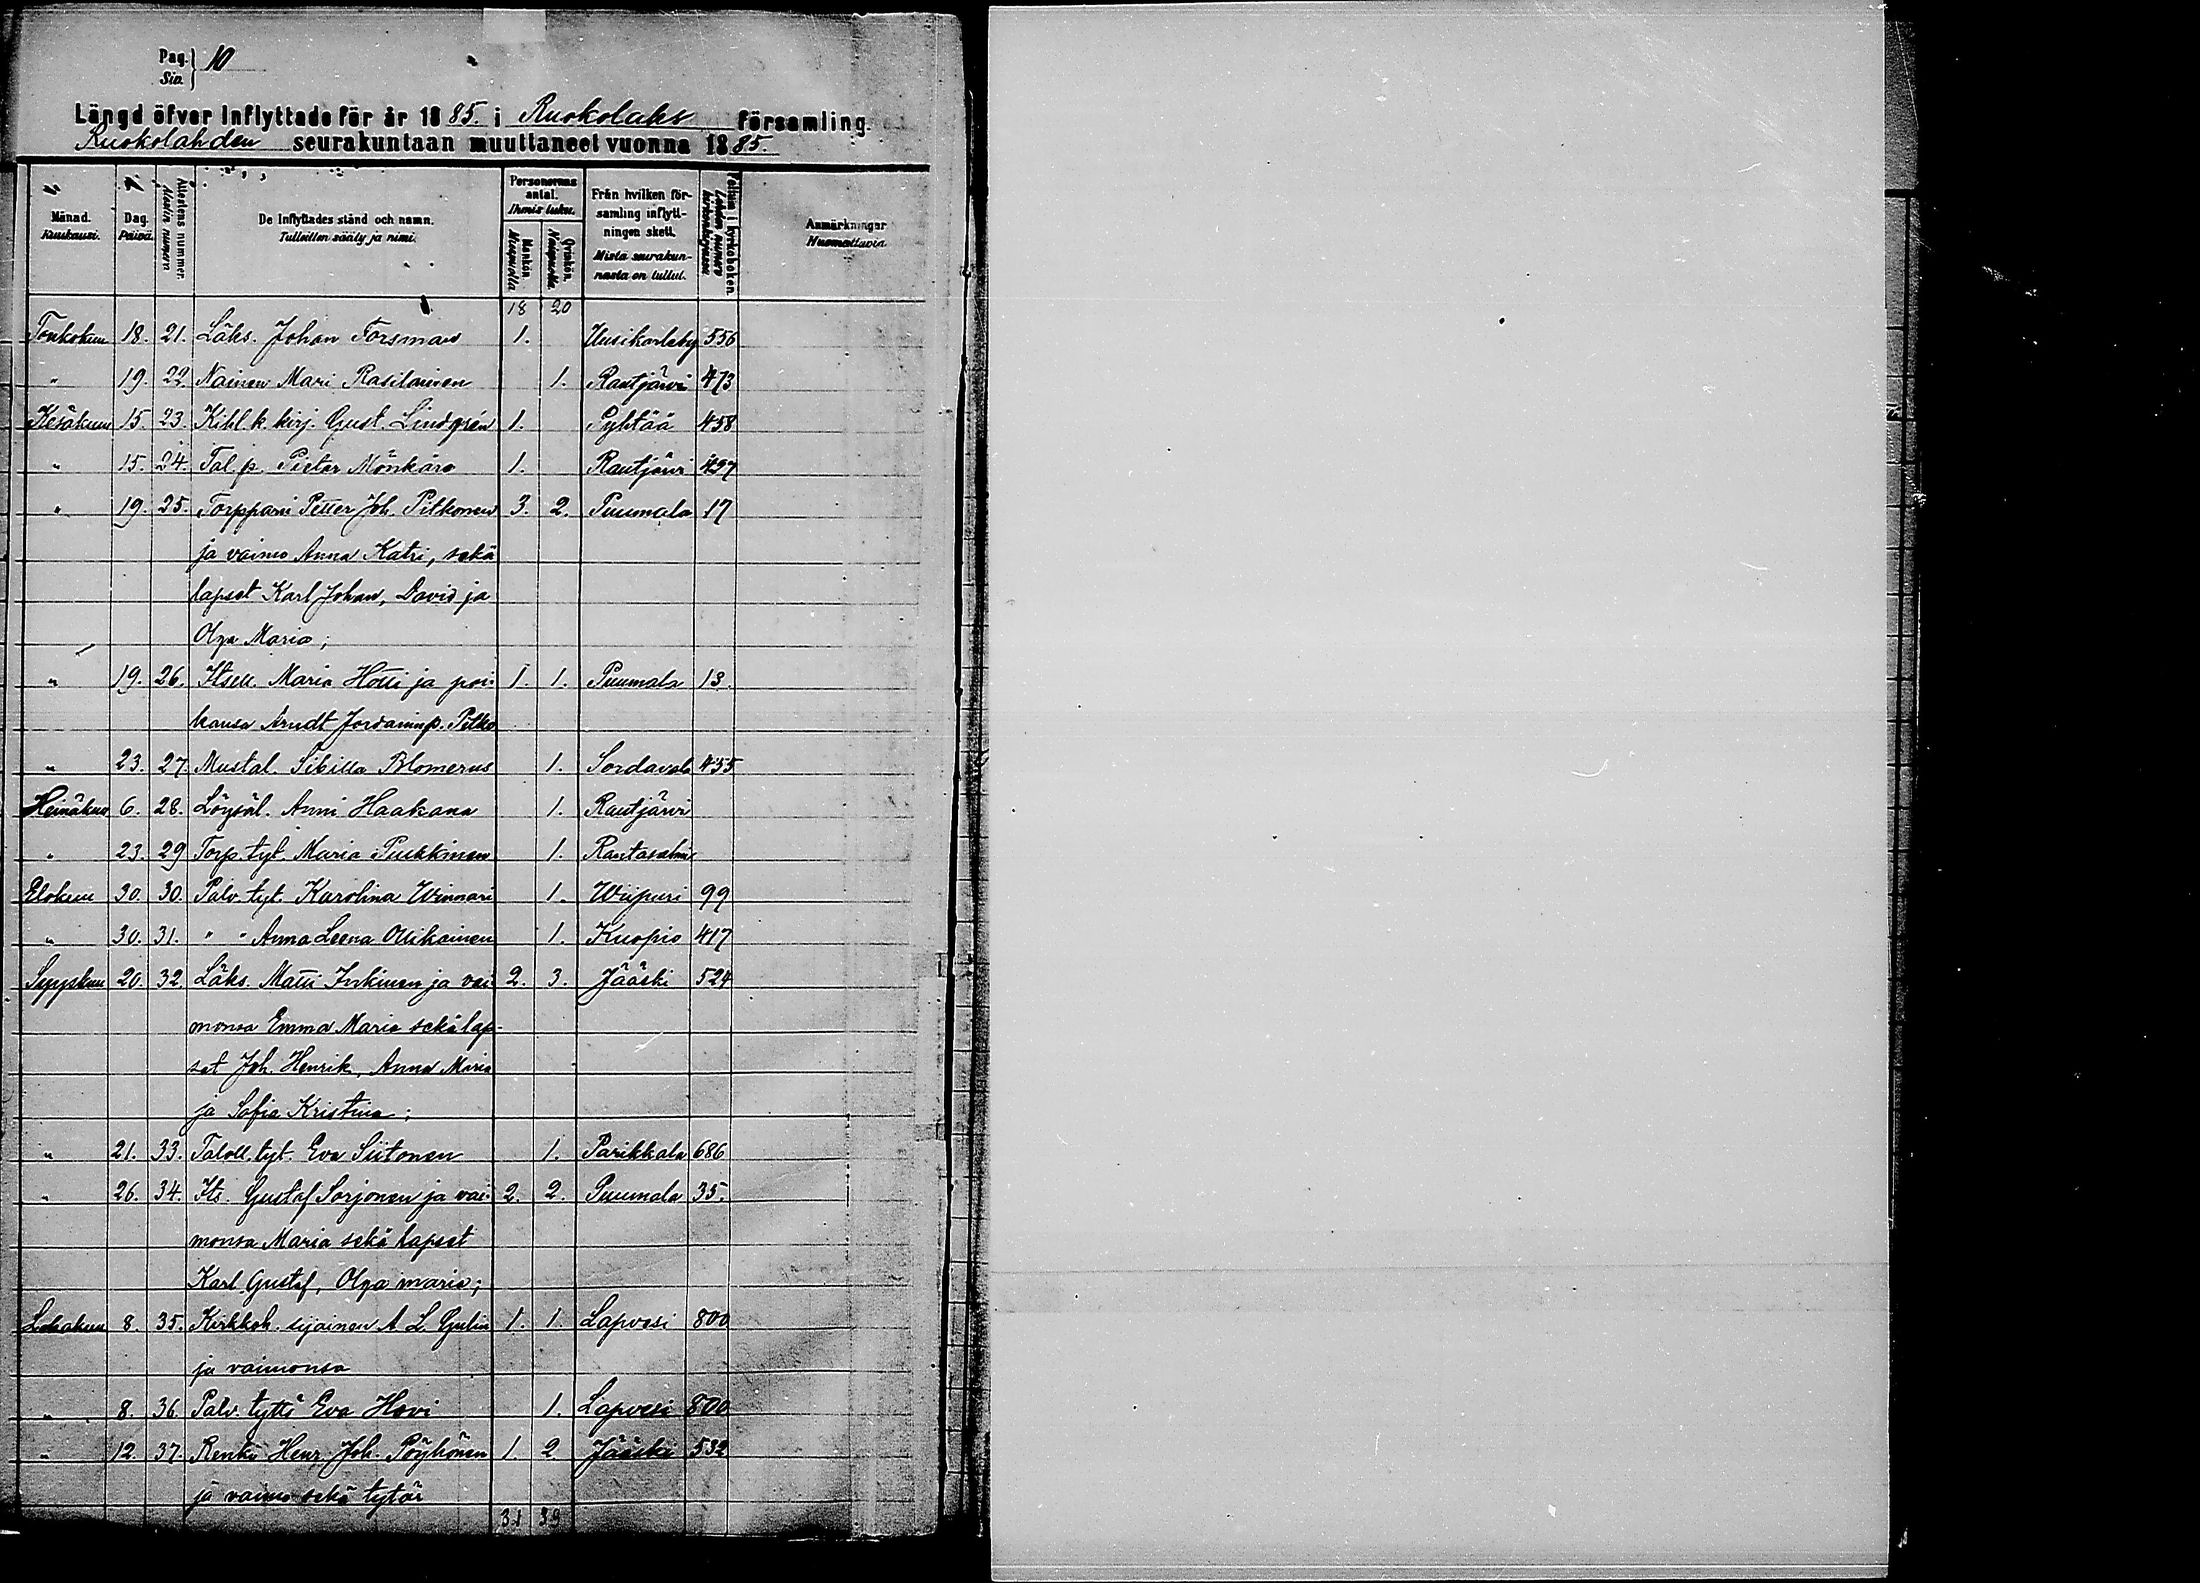 Pag. Siv. } 10
Längd öfver Inflyttade för år 1885. i Ruokolaks församling.
Ruokolahden seurakuntaan muuttaneet vuonna 1885.
Månad. Kuukausi. Dag. Päivä. Attestens nummer. De Inflyttades stånd och namn. Tulleitten sääty ja nimi. Personernas antal. Ihmis luku. Mankön. Miespuolia Qvinkön. Naispuolia. Från hvilken församling inflyttningen skett. Mista seurakunnasta on tullut. Folium i kyrkoboken. Lehden numero kirkonkirjassa Anmärkningar Huomattavia
18 20
Toukokuu 18. 21. Läks. Johan Forsman 1. Uusikarleby 556
" 19. 22 Nainen Mari Rasilainen 1. Rautjärvi 473
Kesäkuu 15. 23. Kihl. k. kirj. Gust. Lindgrén 1. Pyhtää 458
" 15. 24. Tal. p. Pietar Mönkäre 1. Rautjärvi 497
" 19. 25. Torppari Petter Joh. Pitkonen 3. 2. Puumala 17
ja vaimo Anna Katri, sekä
lapset Karl Johan, David ja
Olga Maria;
" 19. 26. Itsell. Maria Hotti ja poi- 1. 1. Puumala 13.
kansa Arndt Jordaninp. Pitko
" 23. 27. Mustal. Sibilla Blomerus 1. Sordavala 455
Heinäkuu 6. 28. Löysäl. Anni Haakana 1. Rautjärvi
" 23. 29 Torp. tyt. Maria Puukkinen 1. Rantasalmi
Elokuu 30. 30. Palv. tyt. Karolina Winnari 1. Wiipuri 99
" 30. 31. " " Anna Leena Ollikainen 1. Kuopio 417
Syyskuu 20. 32. Läks. Matti Inkinen ja vai- 2. 3. Jääski 524
monsa Emma Maria sekä lap-
set Joh. Henrik, Anna Maria
ja Sofia Kristina;
" 21. 33. Taloll. tyt. Eva Siitonen 1. Parikkala 686
" 26. 34. Its. Gustaf Sorjonen ja vai- 2. 2. Puumala 35.
monsa Maria sekä lapset
Karl Gustaf, Olga maria;
Lokakuu 8. 35. Kirkkoh. sijainen A. L. Gulin 1. 1. Lapvesi 800
ja vaimonsa
" 8. 36. Palv. tyttö Eva Hovi 1. Lapvesi 800
" 12. 37. Renki Henr. Joh. Pöyhönen 1. 2 Jääski 532
ja vaimo sekä tytär
31 39